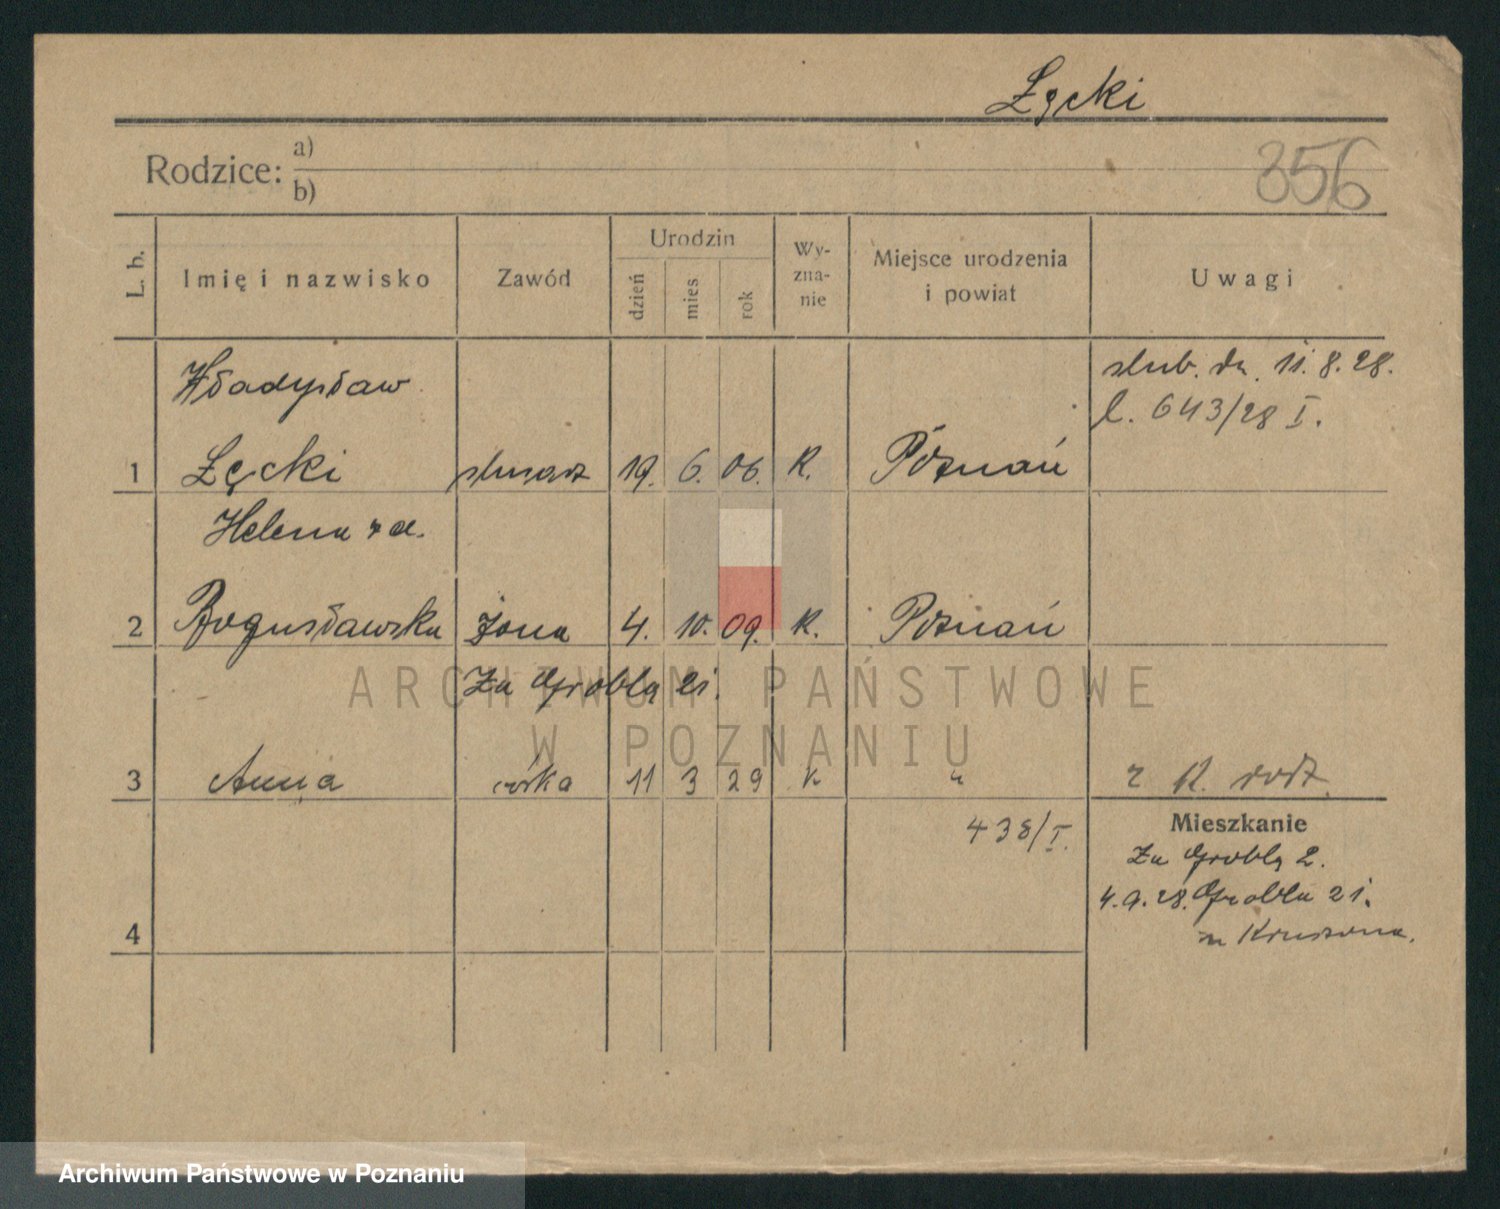 Łącki
356
Rodzice: a)
b)
L. b.
Imię i nazwisko
Zawód
Urodzin
dzień
mies
rok
Wy-
zna-
nie
Miejsce urodzenia
i powiat
Uwagi
Władysław
ślub. dn. 11.8.28.
l. 643/28 I.
1 Łącki ślusarz 19. 6. 06. K. Poznań
Helena z d.
2 Bogusławska żona 4. 10. 09. K. Poznań
Za Groblą 21.
3 Anna córka 11 3 29 k " z K. rodz.
438/I.
Mieszkanie
Za Groblą 2.
4.9.28. Grobla 21.
4
ARCHIWUM PAŃSTWOWE
W POZNANIU
Archiwum Państwowe w Poznaniu